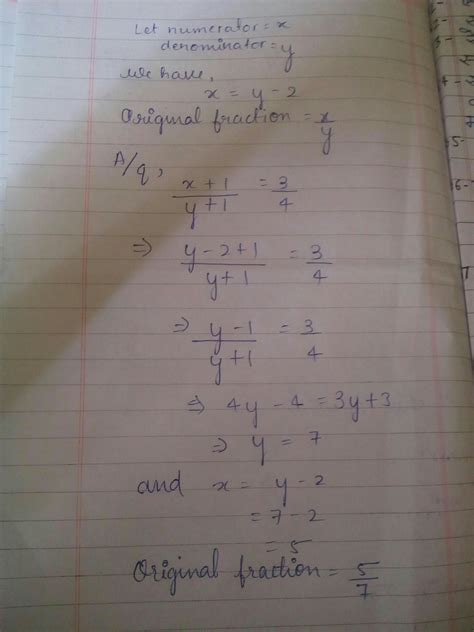 Let numerator = x
denominator = y
We have,
x = y - 2
Original fraction = x/y
A/q,
(x+1)/(y+1) = 3/4
⇒ (y-2+1)/(y+1) = 3/4
⇒ (y-1)/(y+1) = 3/4
⇒ 4y - 4 = 3y + 3
⇒ y = 7
and x = y - 2
= 7 - 2
= 5
Original fraction = 5/7